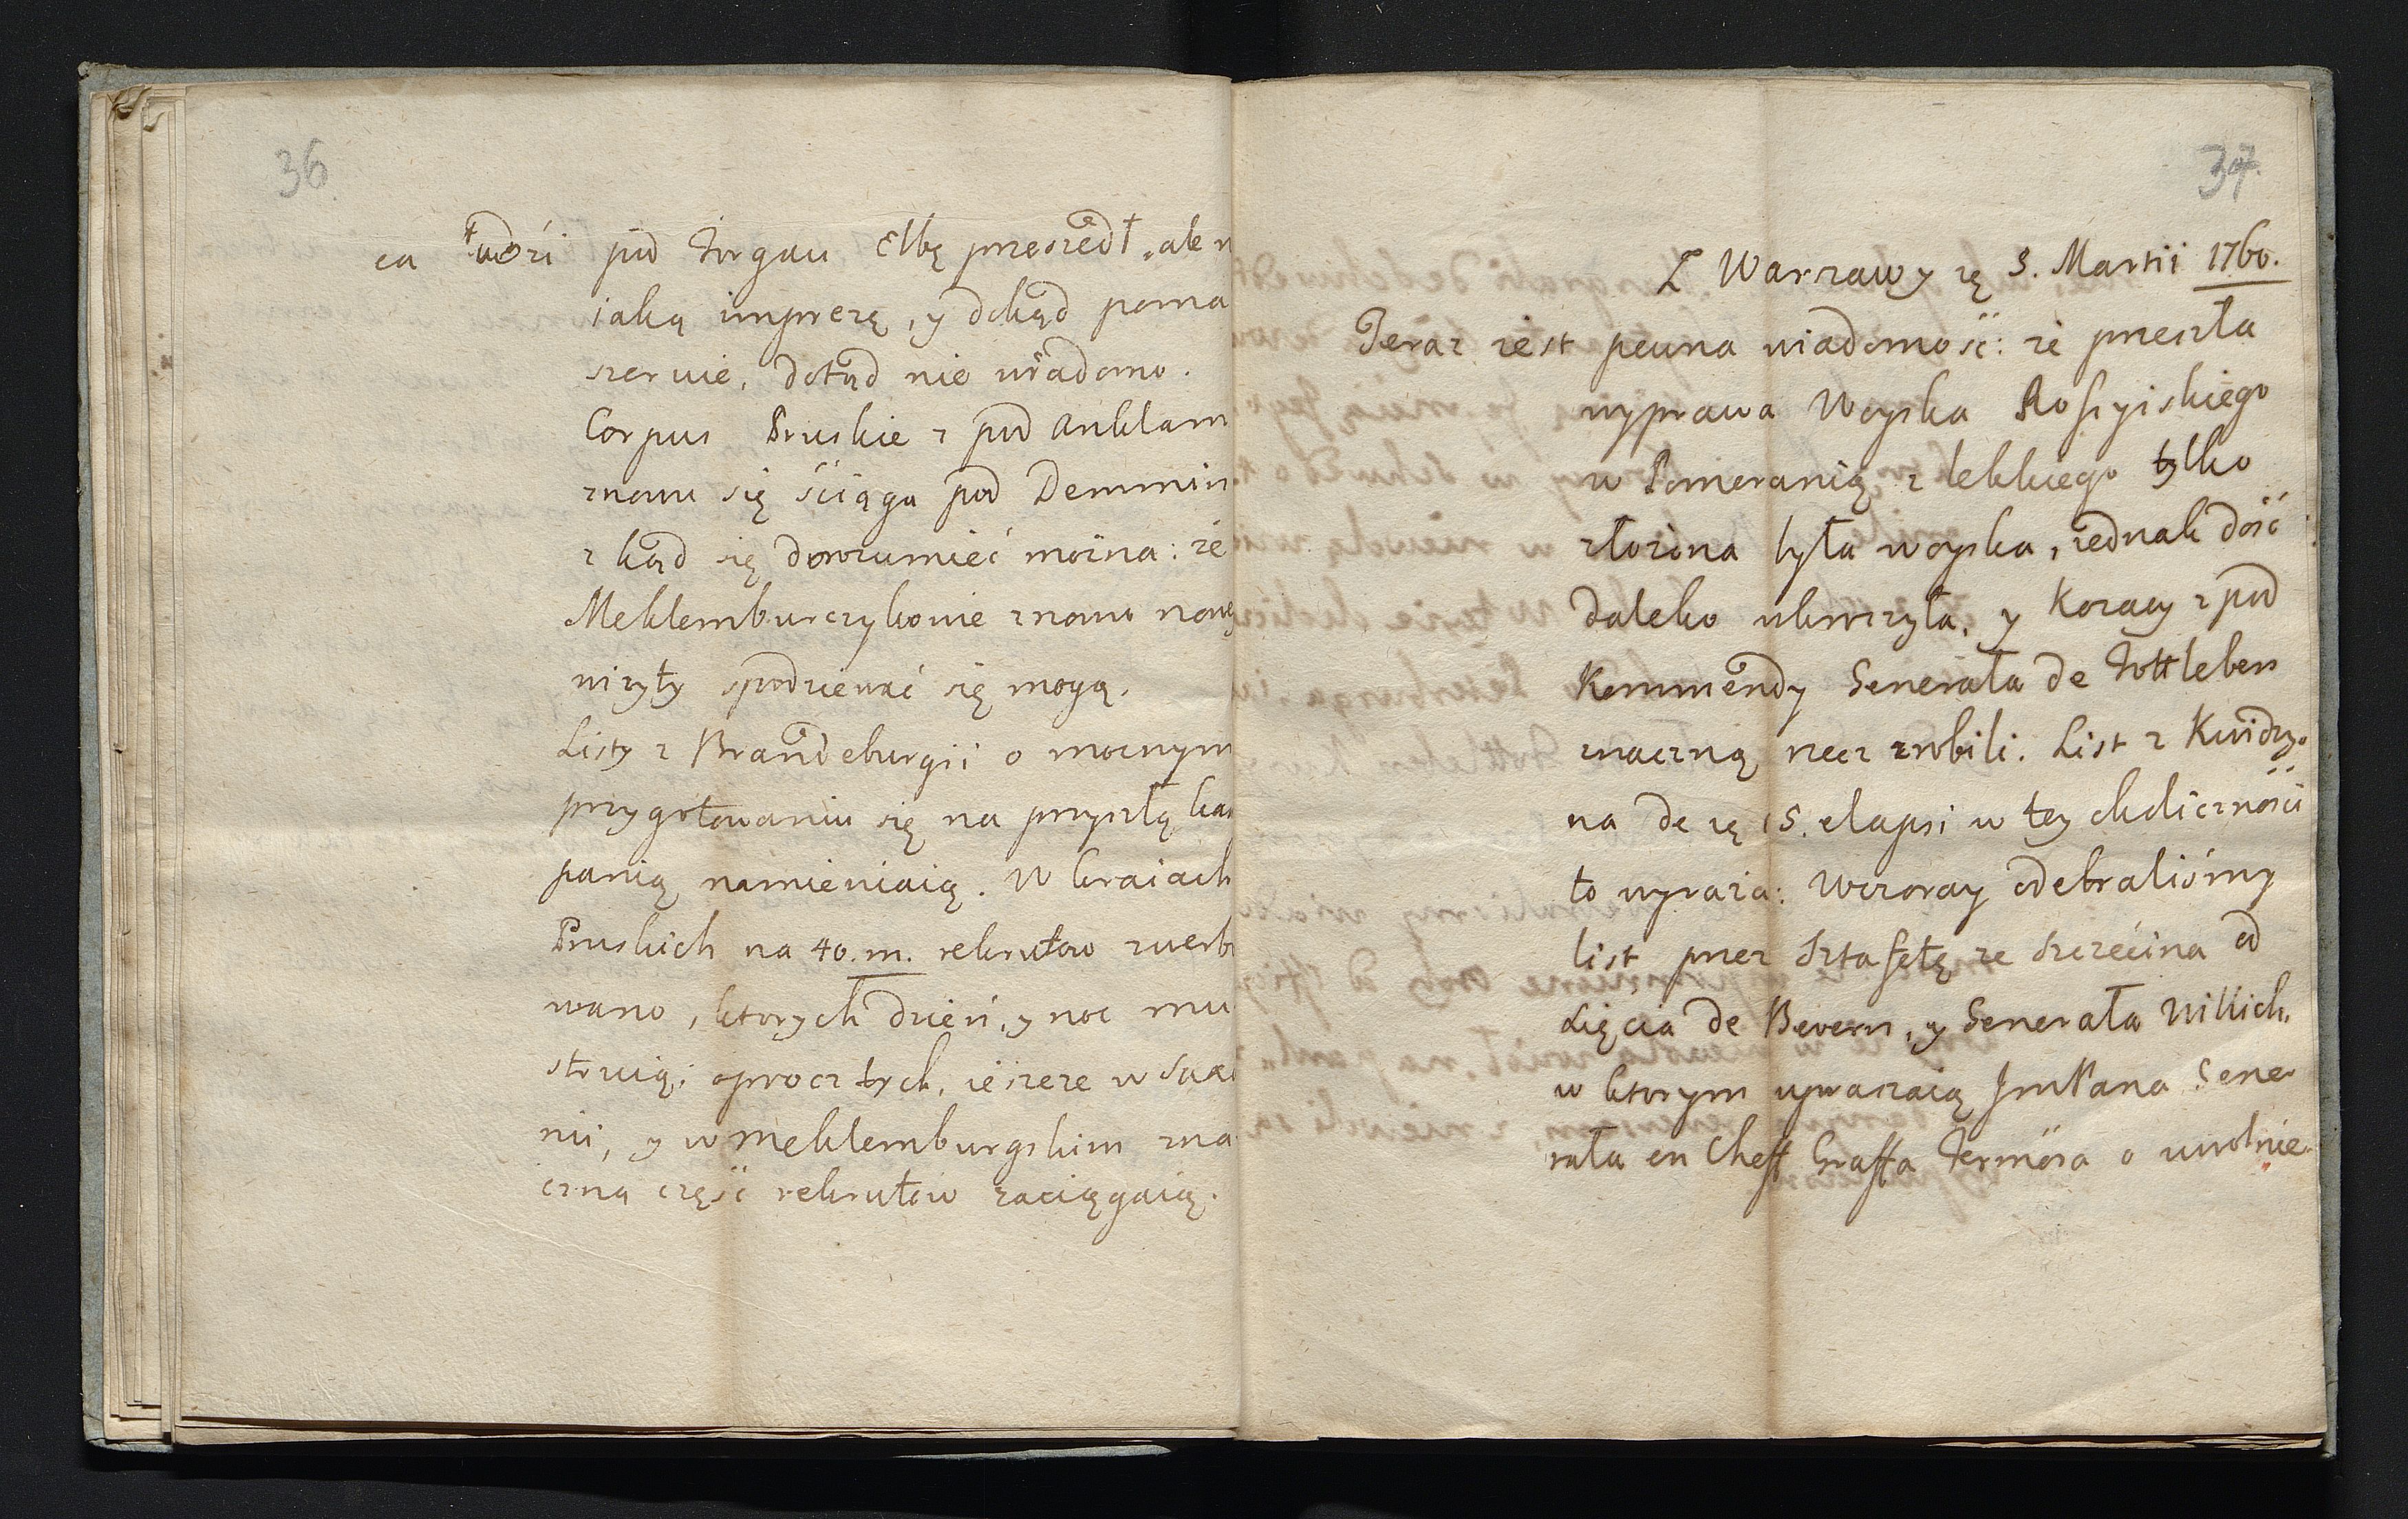 36
ca twóri pod Torgau Elbę przeszedł, ale n
iaką imprezę, y dokąd poma
szeruie, dotąd nie wiadomo.
Corpus Pruskie z pod Anklam
znowu się ściąga pod Demmin
z kąd się doroumieć można: że
Meklemburczykowie znowu nowey
wizyty spodziewać się mogą.
Listy z Brandeburgii o mocnym
przygotowaniu się na przyszłą kam
panią namieniaią. W kraiach
Pruskich na 40. m. rekrutow zwerbo
wano, ktorych dzień, y noc mu
struią; oprocz tych, ieszcze w Saxo
nii, y w Meklemburgskim zna
czną część rekrutow zaciągaią.
37.
Z Warszawy 3. Martii 1760.
Teraz iest pewna wiadomość: że przeszła
wyprawa Woyska Rossyiskiego
w Pomeranią z lekkiego tylko
złożona była woyska, iednak dość
daleko wkroczyła, y Kozacy z pod
Kommendy Generała de Tottleben
znaczną rzecz zrobili. List z Kwidzy-
na de 15. elapsi w tey okoliczności
to wyraża: Wczoray odebraliśmy
list przez Sztafetę ze Szczecina od
Xięcia de Bevern, y Generała Willich.
w ktorym upraszaią JmPana Gene-
rała en Cheff Graffa Fermora o uwolnie-